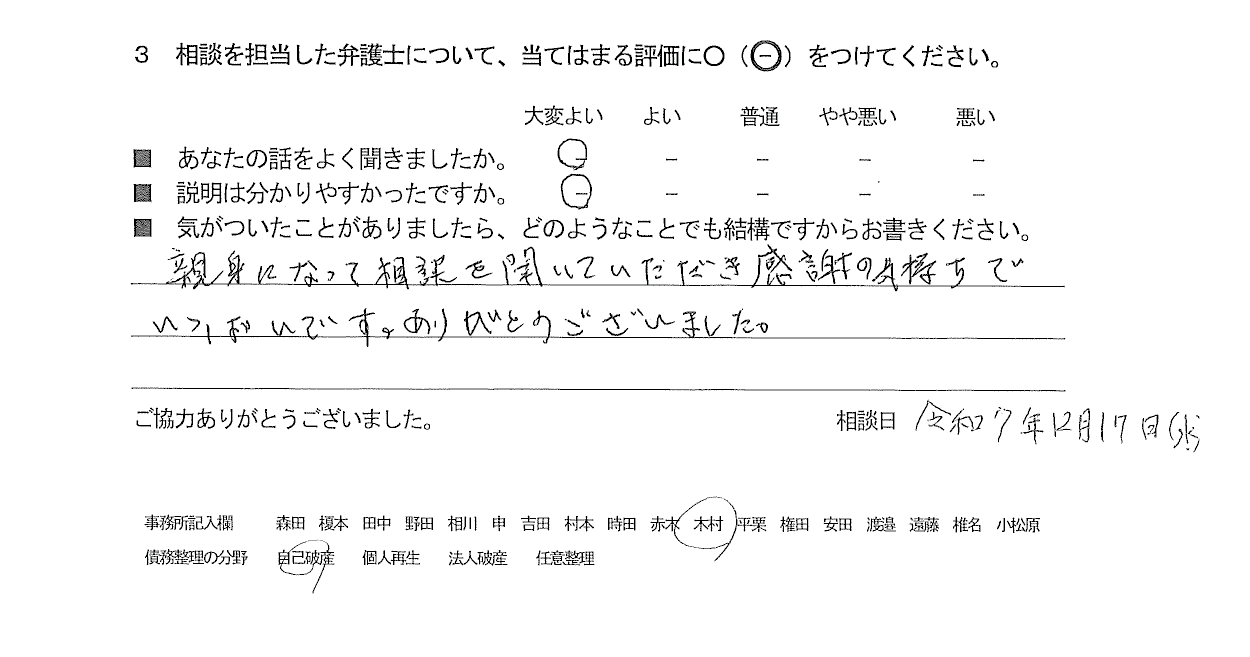 3 相談を担当した弁護士について、当てはまる評価に〇（㊀）をつけてください。
大変よい よい 普通 やや悪い 悪い
■ あなたの話をよく聞きましたか。 － － － － －
■ 説明は分かりやすかったですか。 － － － － －
■ 気がついたことがありましたら、どのようなことでも結構ですからお書きください。
親身になって相談を聞いていただき感謝の気持ちで
いっぱいです。ありがとうございました。
ご協力ありがとうございました。 相談日 令和7年12月17日(水)
事務所記入欄 森田 榎本 田中 野田 相川 申 吉田 村本 時田 赤木 木村 平栗 権田 安田 渡邉 遠藤 椎名 小松原
債務整理の分野 自己破産 個人再生 法人破産 任意整理